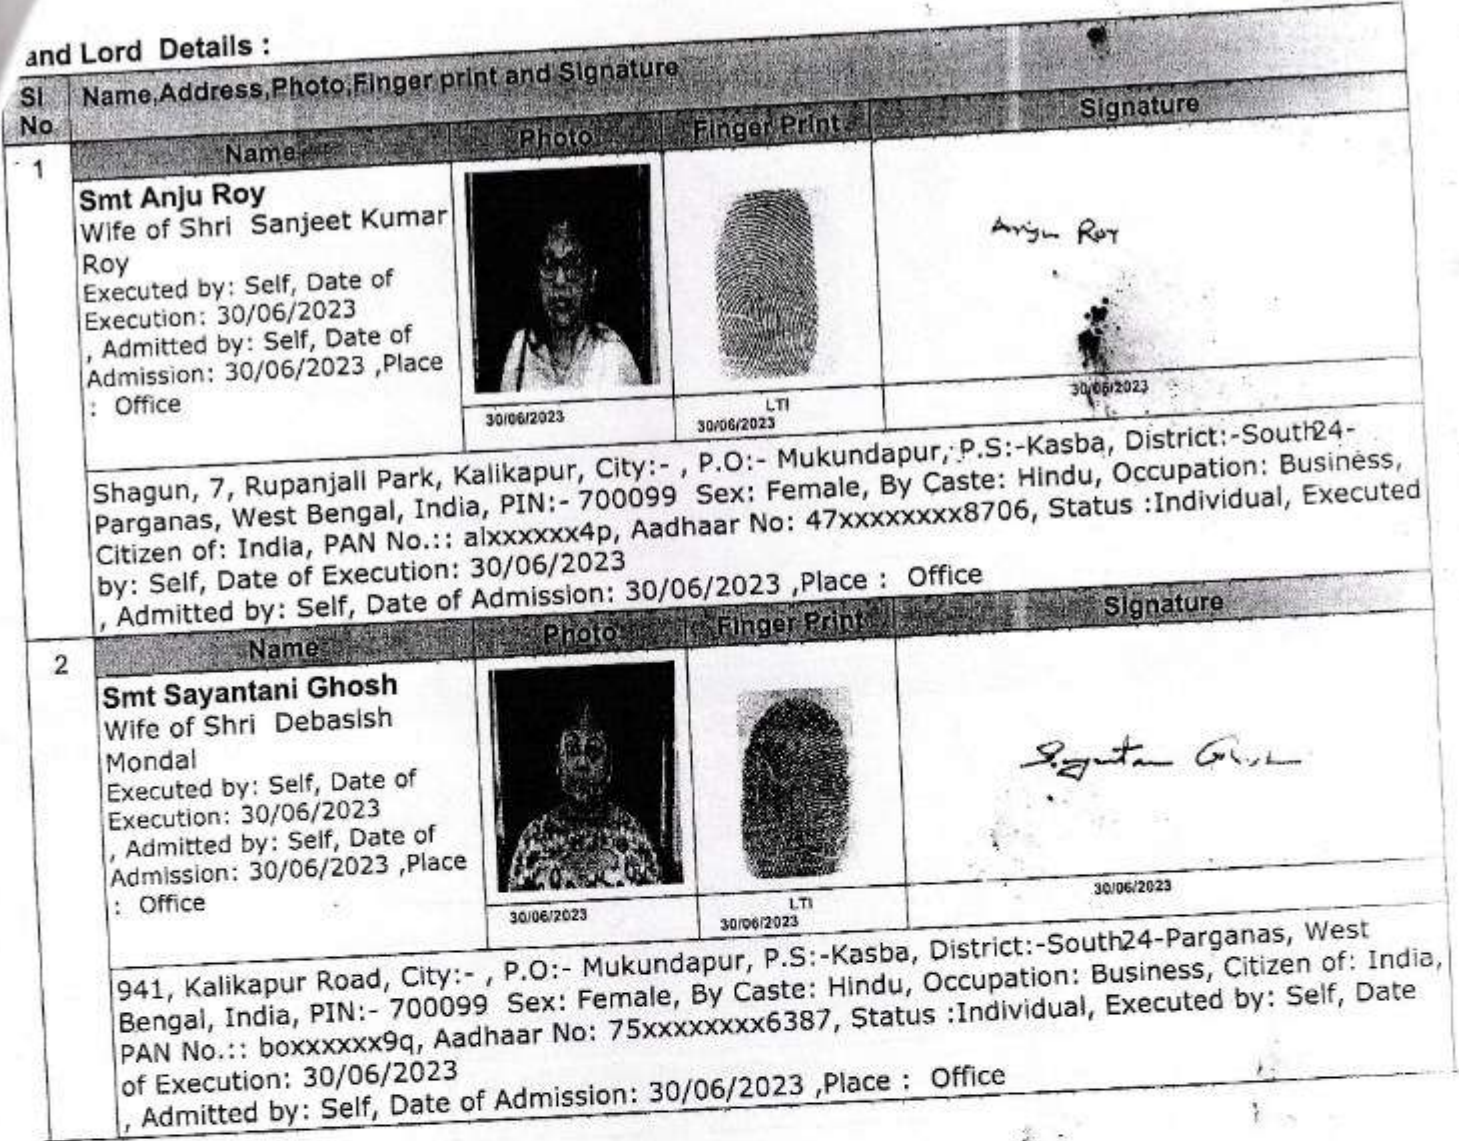 and Lord Details :
Sl No
Name,Address,Photo,Finger print and Signature
1
Name
Photo
Finger Print
Signature
Smt Anju Roy
Wife of Shri Sanjeet Kumar
Roy
Executed by: Self, Date of
Execution: 30/06/2023
, Admitted by: Self, Date of
Admission: 30/06/2023 ,Place
: Office
Anju Roy
30/06/2023
LTI
30/06/2023
30/06/2023
Shagun, 7, Rupanjali Park, Kalikapur, City:- , P.O:- Mukundapur, P.S:-Kasba, District:-South24-
Parganas, West Bengal, India, PIN:- 700099 Sex: Female, By Caste: Hindu, Occupation: Business,
Citizen of: India, PAN No.:: alxxxxxx4p, Aadhaar No: 47xxxxxxxx8706, Status :Individual, Executed
by: Self, Date of Execution: 30/06/2023
, Admitted by: Self, Date of Admission: 30/06/2023 ,Place : Office
2
Name
Photo
Finger Print
Signature
Smt Sayantani Ghosh
Wife of Shri Debasish
Mondal
Executed by: Self, Date of
Execution: 30/06/2023
, Admitted by: Self, Date of
Admission: 30/06/2023 ,Place
: Office
30/06/2023
LTI
30/06/2023
30/06/2023
941, Kalikapur Road, City:- , P.O:- Mukundapur, P.S:-Kasba, District:-South24-Parganas, West
Bengal, India, PIN:- 700099 Sex: Female, By Caste: Hindu, Occupation: Business, Citizen of: India,
PAN No.:: boxxxxxx9q, Aadhaar No: 75xxxxxxxx6387, Status :Individual, Executed by: Self, Date
of Execution: 30/06/2023
, Admitted by: Self, Date of Admission: 30/06/2023 ,Place : Office